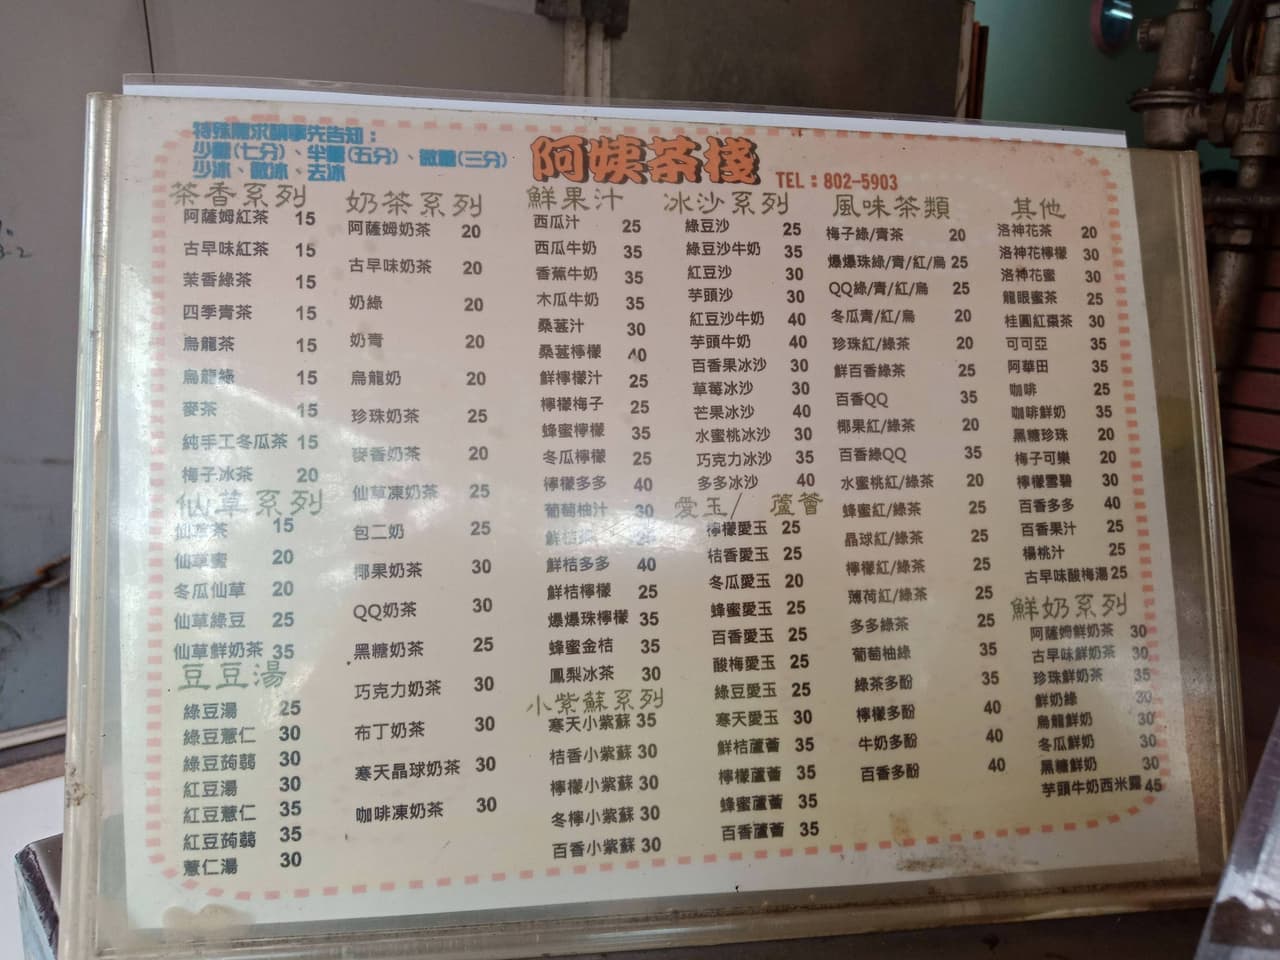 特殊需求請事先告知：
少糖(七分)、半糖(五分)、微糖(三分)
少冰、微冰、去冰
阿姨茶棧
TEL：802-5903
茶香系列
阿薩姆紅茶 15
古早味紅茶 15
茉香綠茶 15
四季青茶 15
烏龍茶 15
烏龍綠 15
麥茶 15
純手工冬瓜茶 15
梅子冰茶 20
仙草系列
仙草茶 15
仙草蜜 20
冬瓜仙草 20
仙草綠豆 25
仙草鮮奶茶 35
豆豆湯
綠豆湯 25
綠豆薏仁 30
綠豆蒟蒻 30
紅豆湯 30
紅豆薏仁 35
紅豆蒟蒻 35
薏仁湯 30
奶茶系列
阿薩姆奶茶 20
古早味奶茶 20
奶綠 20
奶青 20
烏龍奶 20
珍珠奶茶 25
麥香奶茶 20
仙草凍奶茶 25
包二奶 25
椰果奶茶 30
QQ奶茶 30
黑糖奶茶 25
巧克力奶茶 30
布丁奶茶 30
寒天晶球奶茶 30
咖啡凍奶茶 30
鮮果汁
西瓜汁 25
西瓜牛奶 35
香蕉牛奶 35
木瓜牛奶 35
桑葚汁 30
桑葚檸檬 40
鮮檸檬汁 25
檸檬梅子 25
蜂蜜檸檬 35
冬瓜檸檬 25
檸檬多多 40
葡萄柚汁 30
鮮桔
鮮桔多多 40
鮮桔檸檬 25
爆爆珠檸檬 35
蜂蜜金桔 35
鳳梨冰茶 30
小紫蘇系列
寒天小紫蘇 35
桔香小紫蘇 30
檸檬小紫蘇 30
冬檸小紫蘇 30
百香小紫蘇 30
冰沙系列
綠豆沙 25
綠豆沙牛奶 35
紅豆沙 30
芋頭沙 30
紅豆沙牛奶 40
芋頭牛奶 40
百香果冰沙 30
草莓冰沙 30
芒果冰沙 40
水蜜桃冰沙 30
巧克力冰沙 35
多多冰沙 40
愛玉/蘆薈
檸檬愛玉 25
桔香愛玉 25
冬瓜愛玉 20
蜂蜜愛玉 25
百香愛玉 25
酸梅愛玉 25
綠豆愛玉 25
寒天愛玉 30
鮮桔蘆薈 35
檸檬蘆薈 35
蜂蜜蘆薈 35
百香蘆薈 35
風味茶類
梅子綠/青茶 20
爆爆珠綠/青/紅/烏 25
QQ綠/青/紅/烏 25
冬瓜青/紅/烏 20
珍珠紅/綠茶 20
鮮百香綠茶 25
百香QQ 35
椰果紅/綠茶 20
百香綠QQ 35
水蜜桃紅/綠茶 20
蜂蜜紅/綠茶 25
晶球紅/綠茶 25
檸檬紅/綠茶 25
薄荷紅/綠茶 25
多多綠茶 25
葡萄柚綠 35
綠茶多酚 35
檸檬多酚 40
牛奶多酚 40
百香多酚 40
其他
洛神花茶 20
洛神花檸檬 30
洛神花蜜 30
龍眼蜜茶 25
桂圓紅棗茶 30
可可亞 35
阿華田 35
咖啡 25
咖啡鮮奶 35
黑糖珍珠 20
梅子可樂 20
檸檬雪碧 30
百香多多 40
百香果汁 25
楊桃汁 25
古早味酸梅湯 25
鮮奶系列
阿薩姆鮮奶茶 30
古早味鮮奶茶 30
珍珠鮮奶茶 35
鮮奶綠 30
烏龍鮮奶 30
冬瓜鮮奶 30
黑糖鮮奶 30
芋頭牛奶西米露 45